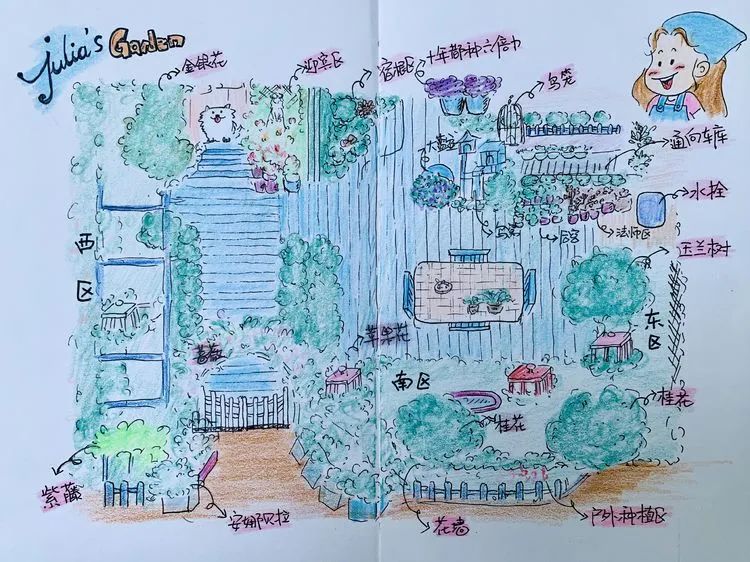 Julia's Garden
金银花
迎宾区
宿根区
十年都种六倍力
鸟笼
通向车库
水栓
玉兰树
鸟窝
法师区
西区
东区
蔷薇
苹果花
南区
桂花
桂花
紫藤
安娜贝拉
花墙
户外种植区